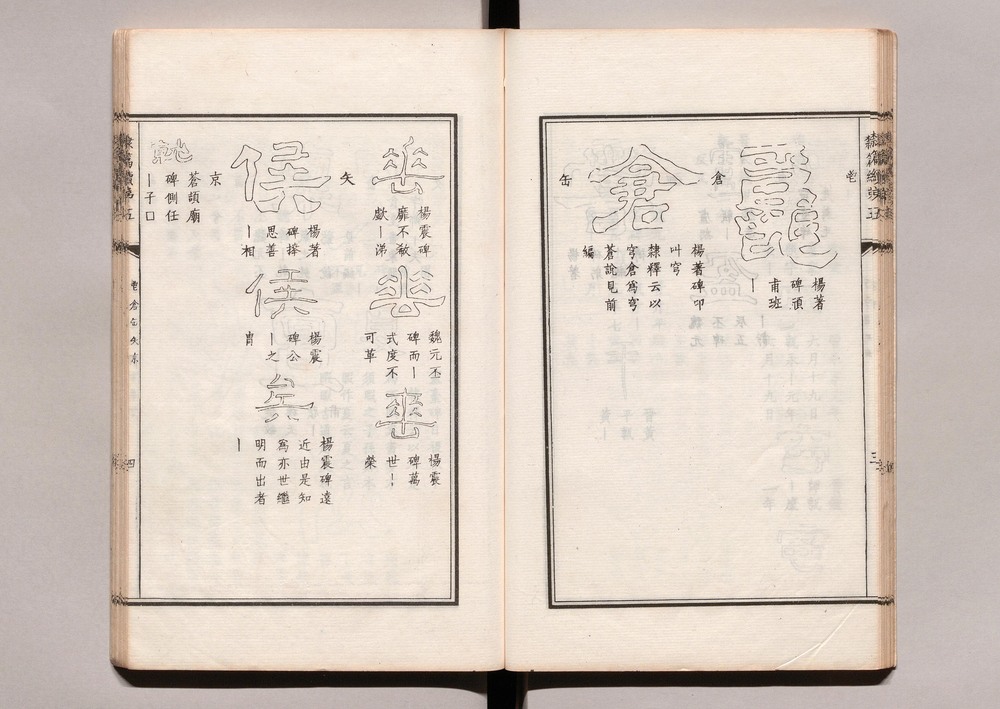 隸篇續第五
豈
楊著
碑頭
甫班
丨
倉
倉
楊著碑叩
叫穹
隸釋云以
穹倉爲穹
蒼說見前
編
缶
楊震碑
靡不欷
歔丨涕
魏元丕
碑而丨
式度不
可革
楊震
碑萬
世丨
榮
矢
侯
楊著
碑擇
思善
丨相
侯
楊震
碑公
丨之
胄
矣
楊震碑遠
近由是知
爲亦世繼
明而出者
丨
京
蒼頡廟
碑側任
丨子口
隸篇續第五
四